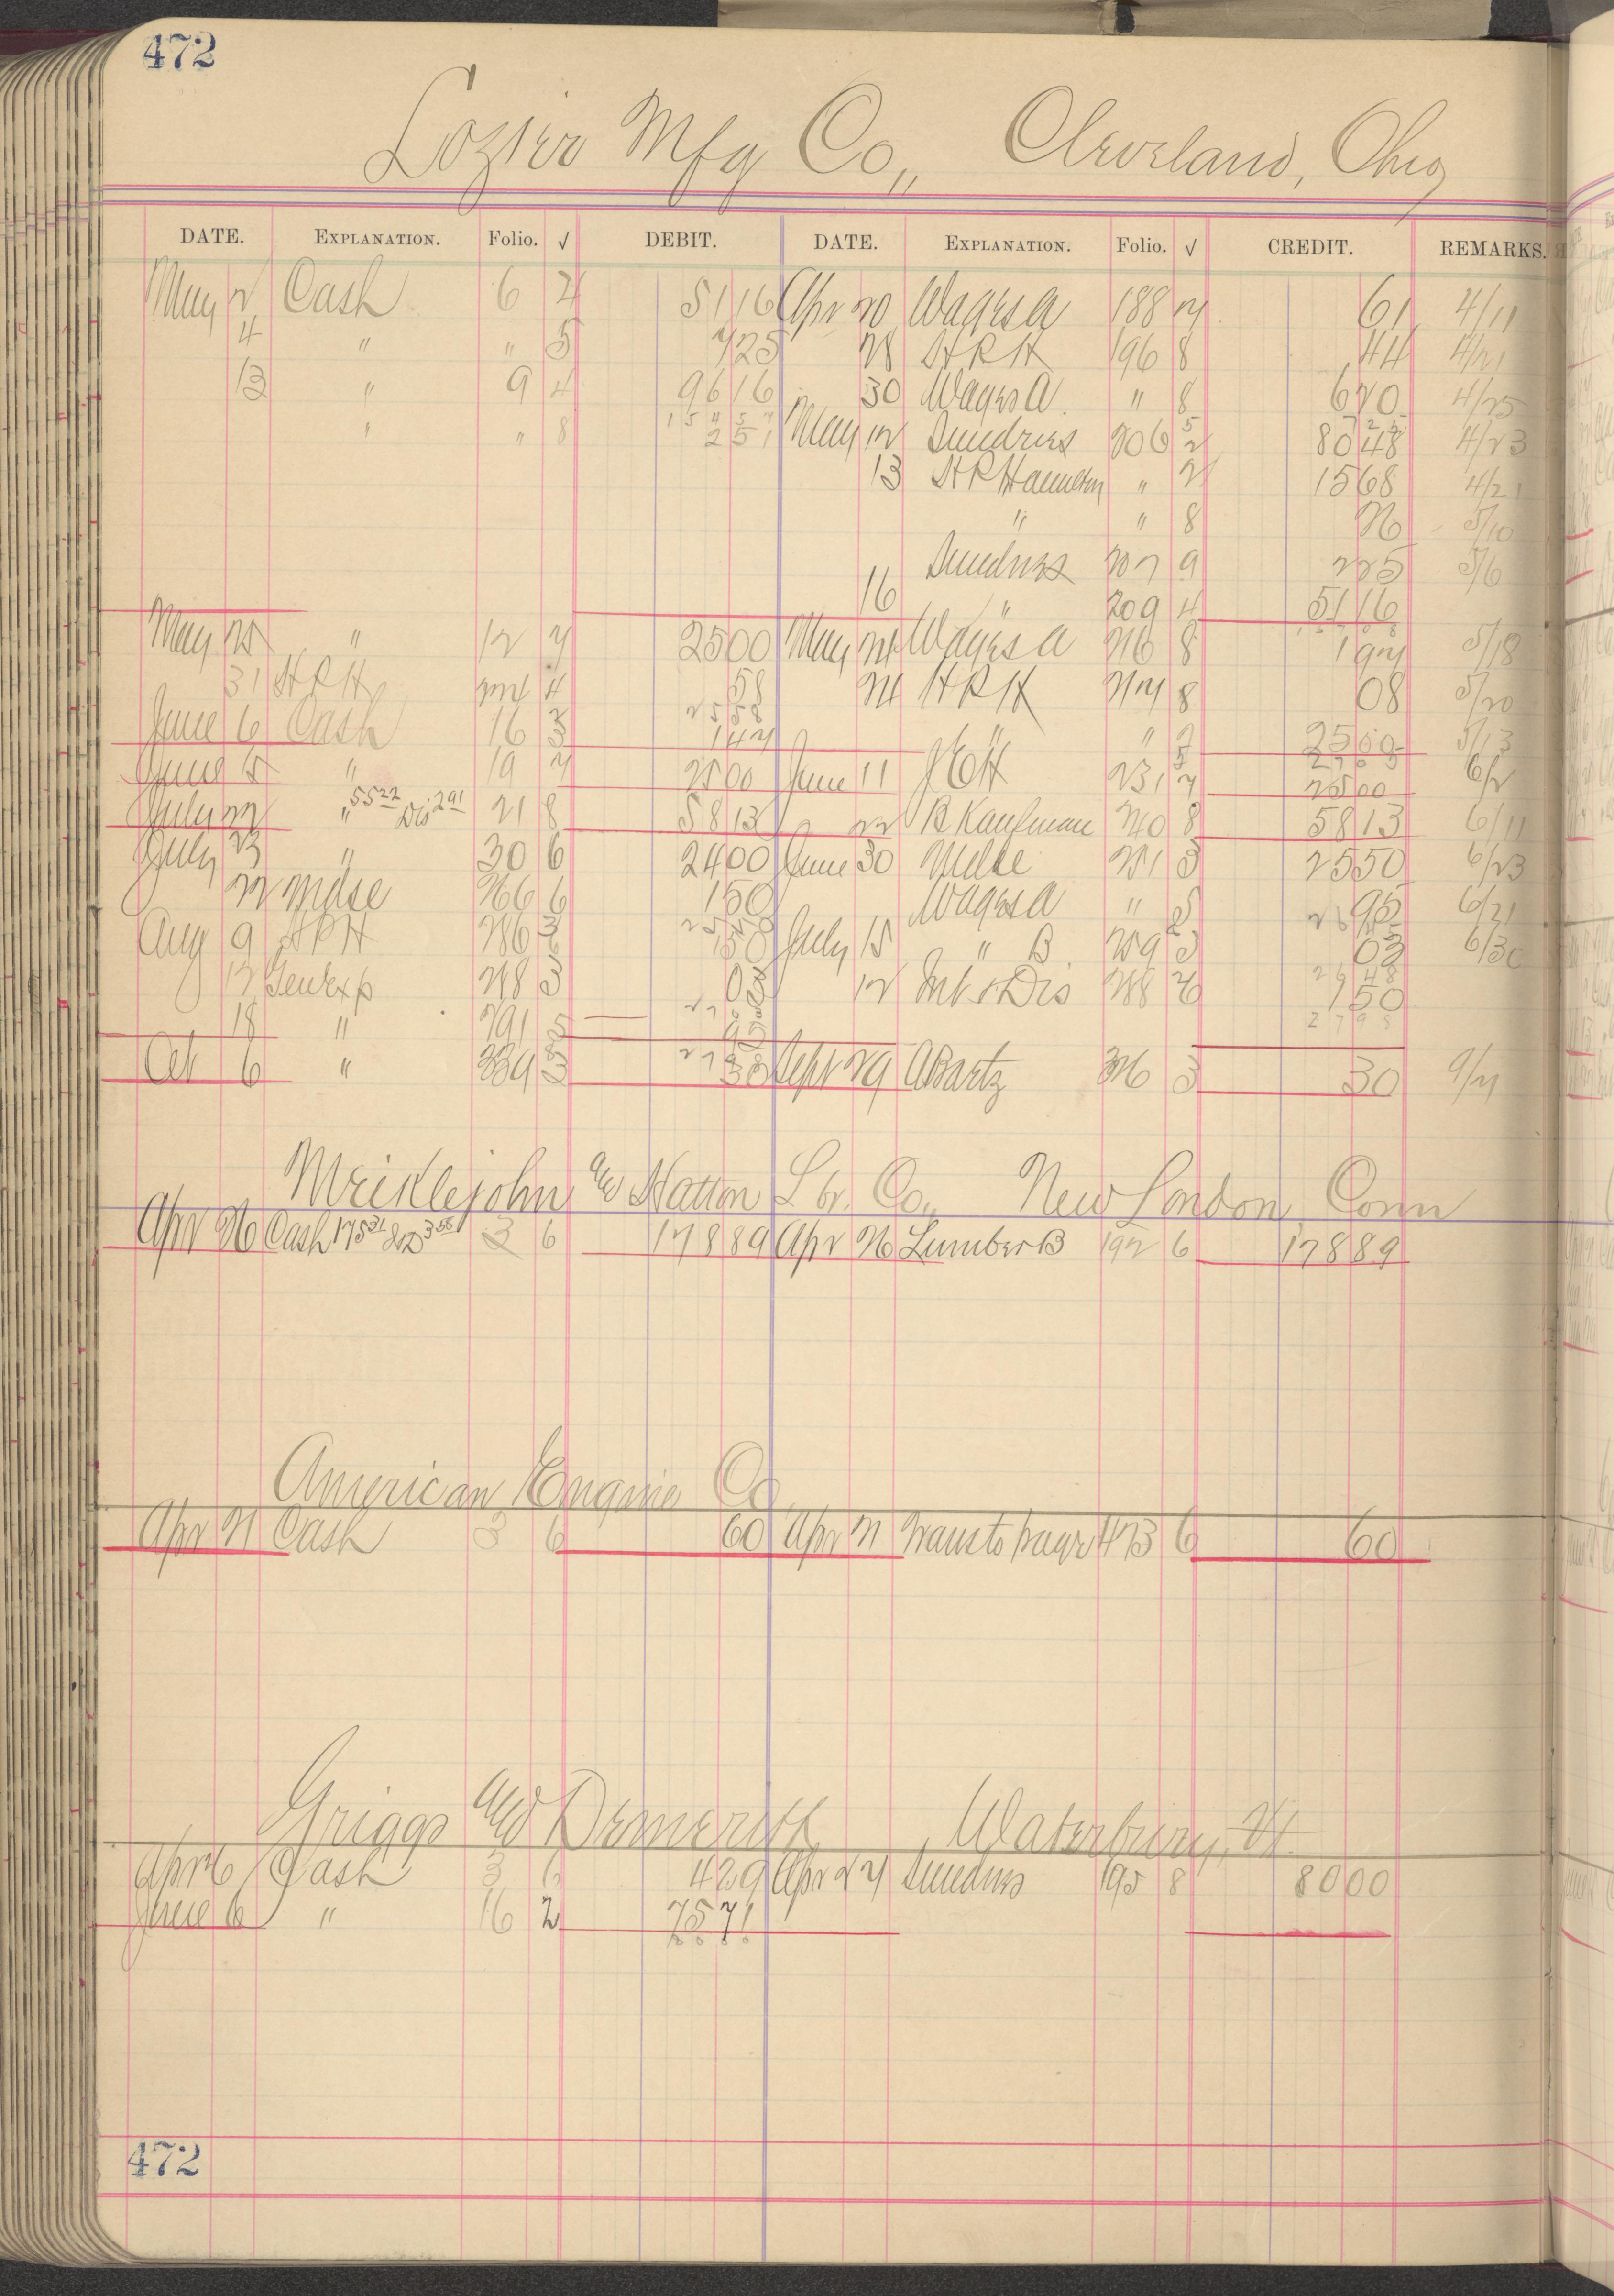 472
Lozier Mfg Co,, Cleveland, Ohio
DATE. EXPLANATION. Folio. √ DEBIT. DATE. EXPLANATION. Folio. √ CREDIT. REMARKS.
May 2 Cash 6 4 51 16 Apr 20 Wages A 188 7 61 4/11
4 " " 5 7 25 28 HRH 196 8 44 4/21
13 " 9 4 96 16 30 Wages A " 8 6 20 4/25
" " 8 2 51 May 12 Sundries 206 2 80 48 4/23
13 HR Hamilton " 2 15 68 4/21
" " 8 26 5/10
Sundries 207 9 2 25 5/6
16 " 209 4 51 16
May 25 " 12 7 25 00 May 24 Wages A 216 8 1 97 5/18
31 HRH 224 4 58 24 HRH 217 8 08 5/20
25 58
June 6 Cash 16 3 1 47 " " 25 00 5/13
June 15 " 19 7 25 00 June 11 231 7 25 00 6/2
July 22 " 55 22 Dis 2 91 21 8 58 13 22 B Kaufman 240 8 58 13 6/11
July 23 " 30 6 24 00 June 30 Mdse 251 3 25 50 6/23
22 Mdse 266 6 1 50 Wages A " 5 95 6/21
Aug 9 HRH 286 1 50 July 15 " B. 259 3 03 6/30
12 Gen Exp 288 3 12 Int & Dis 288 1 50
18 " 291 5
Oct 6 " 339 3 30 Sept 29 A Bartz 326 3 30 9/7
Meiklejohn & Hatton Lbr. Co,, New London, Conn
Apr 26 Cash 175 31 Dis 3 58 3 6 178 89 Apr 26 Lumber B 192 6 178 89
American Engine Co
Apr 21 Cash 3 6 60 Apr 21 Trans to page 473 6 60
Griggs and Demeritt, Waterbury, Vt.
Apr 26 Cash 3 6 4 29 Apr 27 Sundries 195 8 80 00
June 6 " 16 2 75 71
80 00
472